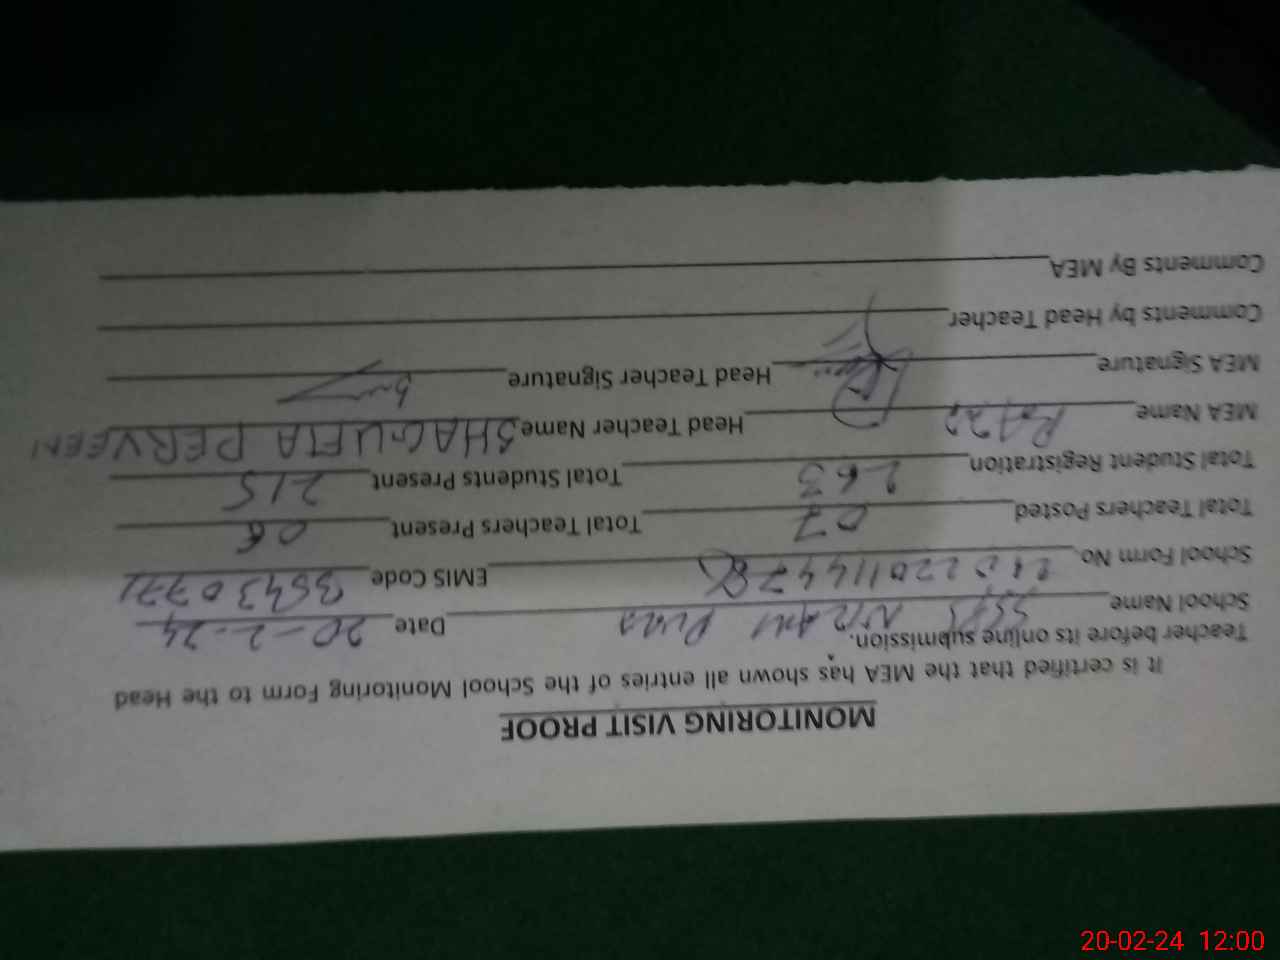 MONITORING VISIT PROOF
It is certified that the MEA has shown all entries of the School Monitoring Form to the Head
Teacher before its online submission.
School Name Date 20-2-24
School Form No. EMIS Code 35430771
Total Teachers Posted 07 Total Teachers Present 06
Total Student Registration 263 Total Students Present 215
MEA Name Head Teacher Name SHAGUFTA PERVEEN
MEA Signature Head Teacher Signature
Comments by Head Teacher
Comments By MEA
20-02-24 12:00